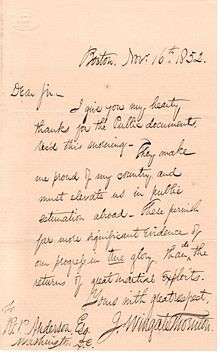 Boston, Nov. 16th 1852.
Dear Sir_
I give you my hearty
thanks for the Public documents,
this morning_ They make
me proud of my country, and
must elevate us in public
estimation abroad_ These
far more significant evidence of
our progress in true glory than the
returns of great martial exploits.
Yours with great respect,
J. Wingate Thornton
To
Anderson Esq
Washington D.C.